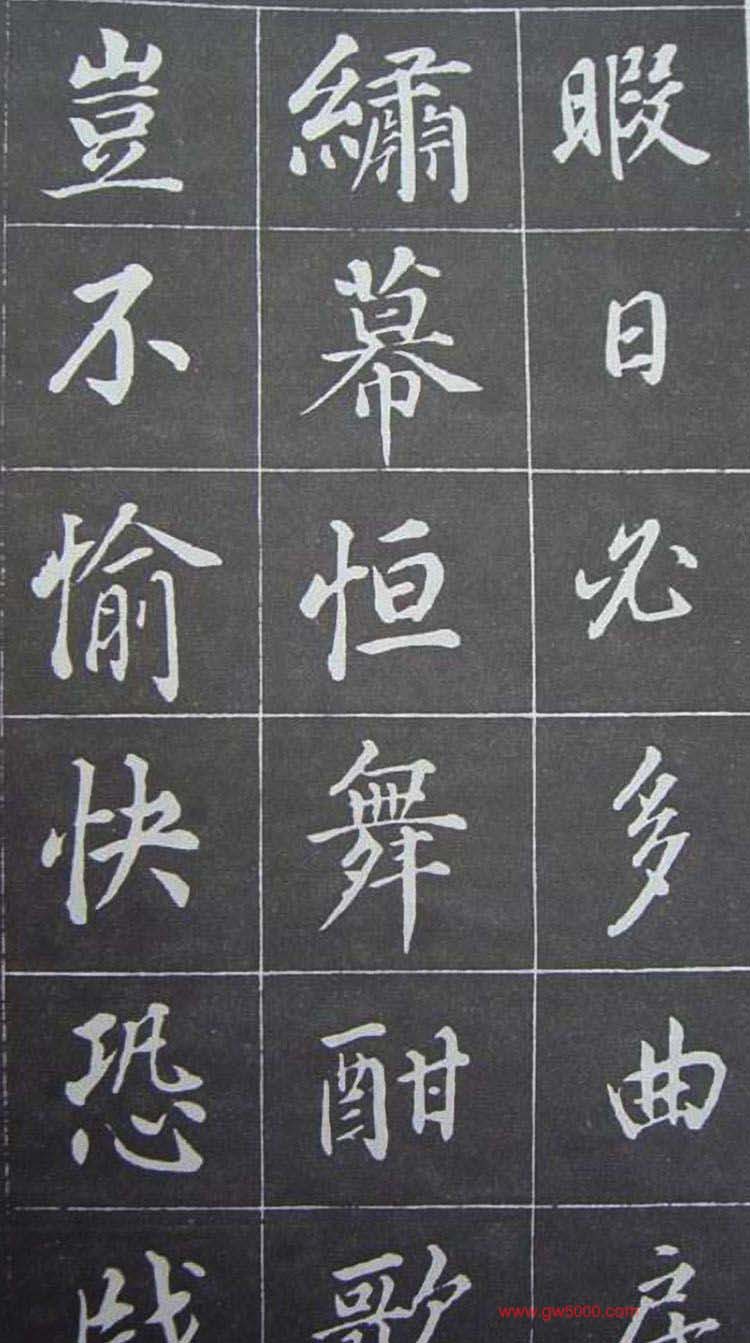 暇日必多曲
繡幕恒舞酣歌
豈不愉快恐
www.gw5000.com